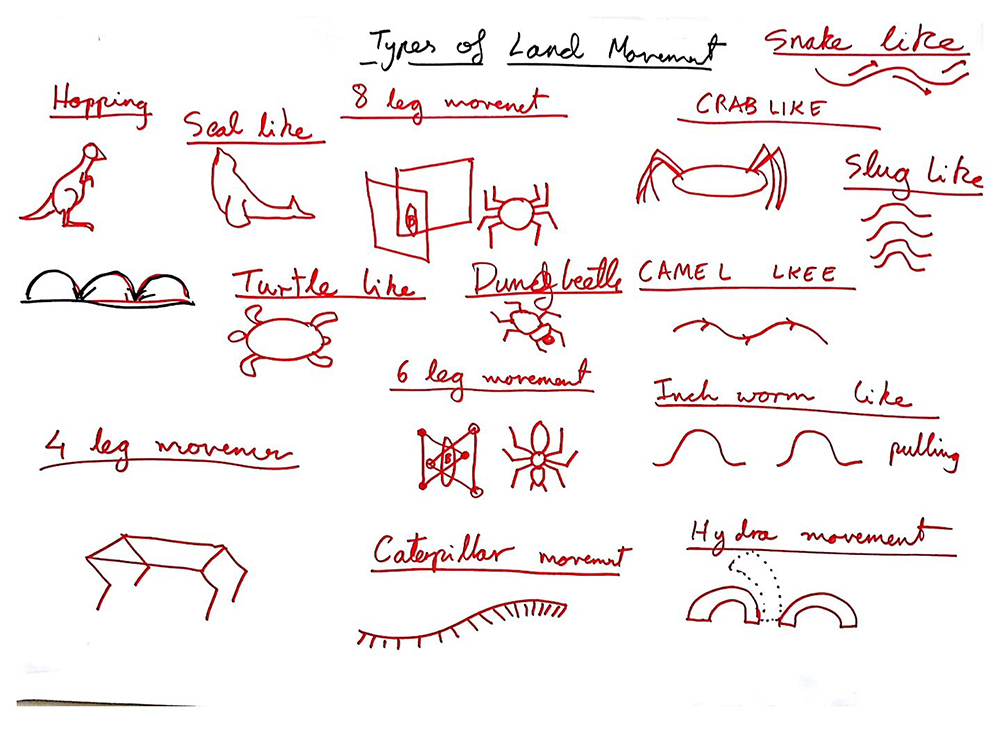 Types of Land Movement
Snake like
Hopping
Seal like
8 leg movenet
CRAB LIKE
Slug Like
B
Turtle like
Dung beetle
CAMEL LKEE
6 leg movement
Inch worm like
4 leg movemer
B
pulling
Caterpillar movemnt
Hydra movement